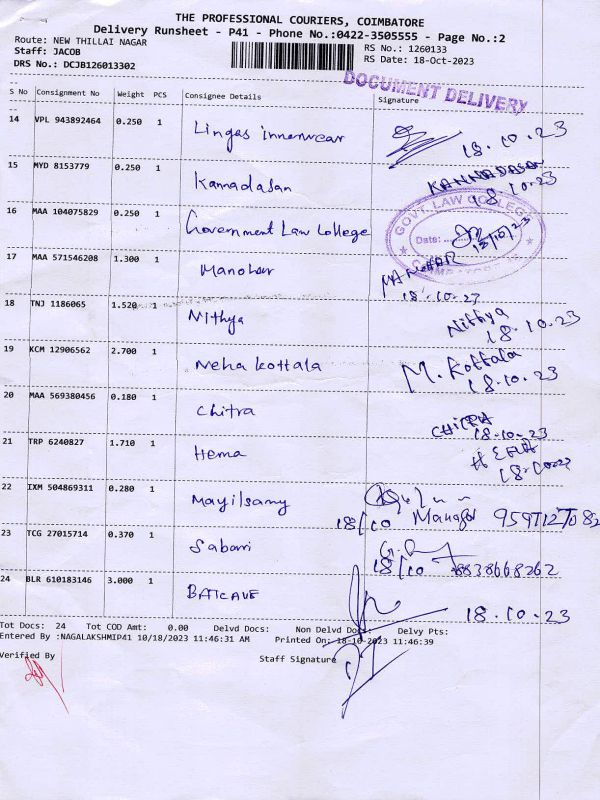 THE PROFESSIONAL COURIERS, COIMBATORE
Delivery Runsheet - P41 - Phone No.:0422-3505555 - Page No.:2
Route: NEW THILLAI NAGAR
RS No.: 1260133
Staff: JACOB
RS Date: 18-Oct-2023
DRS No.: DCJB126013302
DOCUMENT DELIVERY
S No Consignment No Weight PCS Consignee Details Signature
14 VPL 943892464 0.250 1 Lingas innerwear 18.10.23
15 MYD 8153779 0.250 1 Kannadasan KANNADASAN 18.10.23
16 MAA 104075829 0.250 1 Government Law College
GOVT. LAW COLLEGE
Date:
17 MAA 571546208 1.300 1 Manohar MANOHAR 18.10.23
18 TNJ 1186065 1.520 1 Nithya Nithya 18.10.23
19 KCM 12906562 2.700 1 Neha Kottala M. Kottala 18.10.23
20 MAA 569380456 0.180 1 Chitra 18-10-23
21 TRP 6240827 1.710 1 Hema HEMA 18.10.23
22 IXM 504869311 0.280 1 Mayilsamy 18/10
23 TCG 27015714 0.370 1 Sabari 18/10 8838668262
24 BLR 610183146 3.000 1 BATCAVE 18.10.23
Tot Docs: 24 Tot COD Amt: 0.00 Delvd Docs: Non Delvd Docs: Delvy Pts:
Entered By :NAGALAKSHMIP41 10/18/2023 11:46:31 AM Printed On: 18-10-2023 11:46:39
Verified By Staff Signature